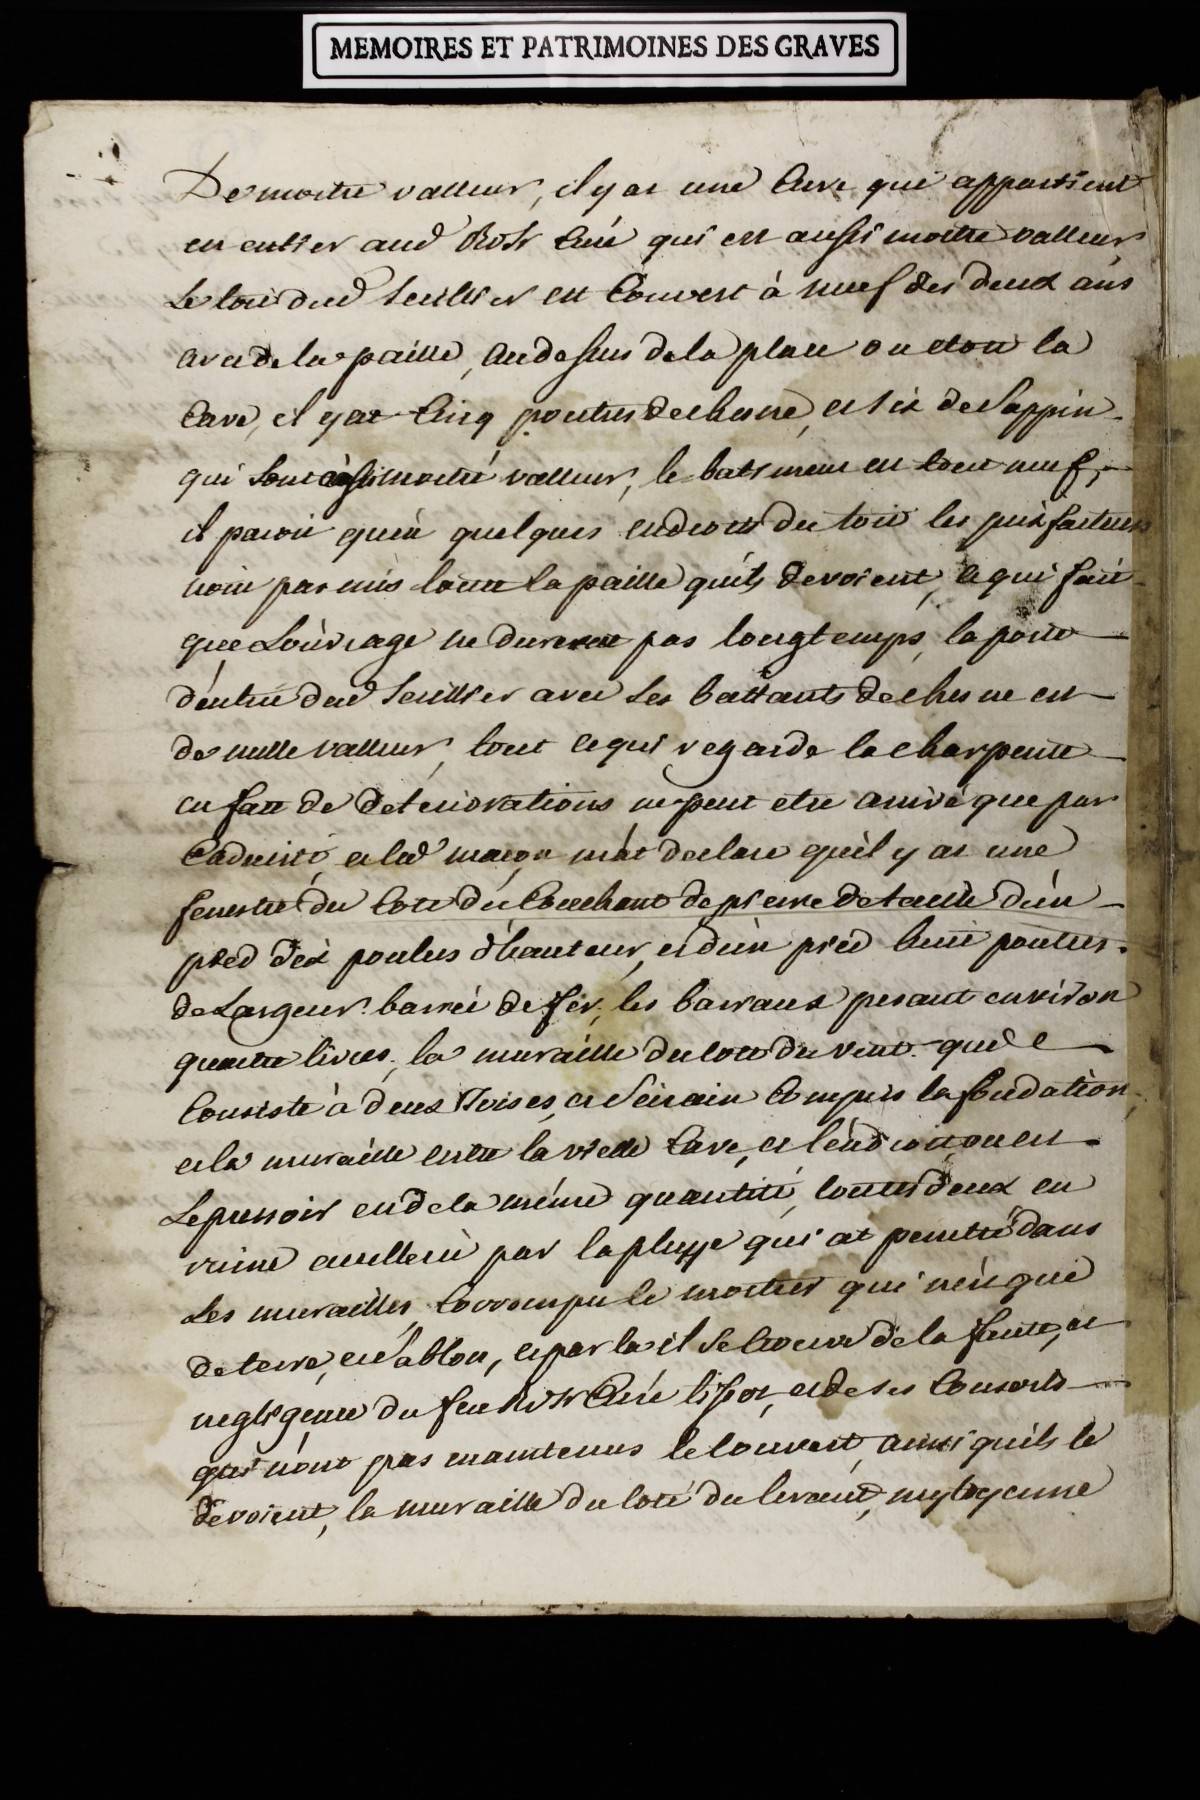 MEMOIRES ET PATRIMOINES DES GRAVES
De moitie valleur, il y at une Cuve qui appartient
en entier aud Rd Sr Curé qui est aussi moitie valleur
Le toit dud Seillier est Couvert à neuf des deux ans
avec de la paille, au dessus de la place ou etoit la
Cave, il y at Cinq poutres de chesne, et six de Sappin
qui sont aussi moitié valleur, le batiment est tout neuf,
il paroit qu'en quelques endroits du toit les prixfacteurs
n'ont pas mis toute la paille quils devoient, ce qui fait
que Louvrage ne durerat pas longtemps, la porte
d'entrée dud Seillier avec ses battants de chesne est
de nulle valleur, tout ce qui regarde la charpente
en fait de deteriorations ne peut etre arrivé que par
Caducité, et led maçon m'at declaré qu'il y at une
fenestre du Coté du Couchant de pierre de taille d'un
pied dix pouces d'hauteur, et d'un pied huit pouces
de Largeur barrée de fer, les barraux pesant environ
quatre livres, la muraille du coté du vent que
Consiste à deux Toises, et Seirain Compris la fondation,
et la muraille entre la vielle Cave, et lendroit ou est
Le pressoir est de la même quantité, toutes deux en
ruine par la pluye qui at penetré dans
Les murailles, Corrompu le mortier qui n'est que
de terre, et Sablon, et par la il se trouve de la faute, et
negligence du feu Rd Sr Curé et de ses Consorts
qui n'ont pas maintenus le Couvert, ainsi quils le
devoient, la muraille du coté du levant, mytoyenne